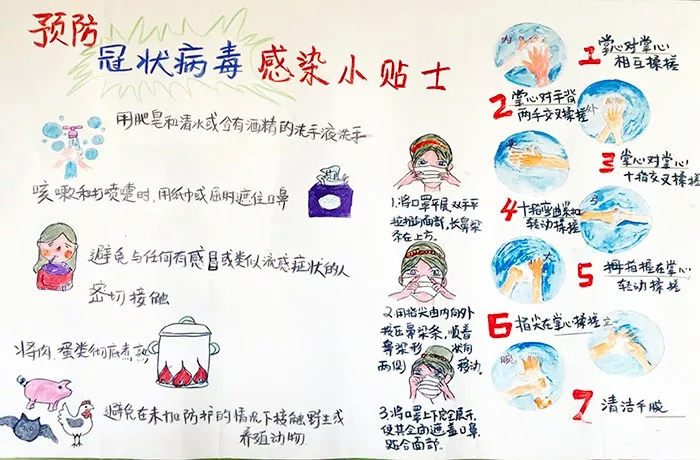 预防
冠状病毒 感染小贴士
用肥皂和清水或含有酒精的洗手液洗手
咳嗽和打喷嚏时,用纸巾或屈肘遮住口鼻
避免与任何有感冒或类似流感症状的人
密切接触
将肉、蛋类彻底煮熟
避免在未加防护的情况下接触野生或
养殖动物
1.将口罩平展,双手平
拉推向面部,长鼻梁
条在上方。
2.用指尖由内向外
按压鼻梁条,顺着
鼻梁形状向
两侧移动
3.将口罩上下完全展开,
使其全面遮盖口鼻,
贴合面部。
内
1 掌心对掌心
相互揉搓
外
2 掌心对手背
两手交叉揉搓
夹
3 掌心对掌心
十指交叉揉搓
弓
4 十指弯曲紧扣
转动揉搓
大
5 拇指握在掌心
转动揉搓
立
6 指尖在掌心揉搓
腕
7 清洁手腕